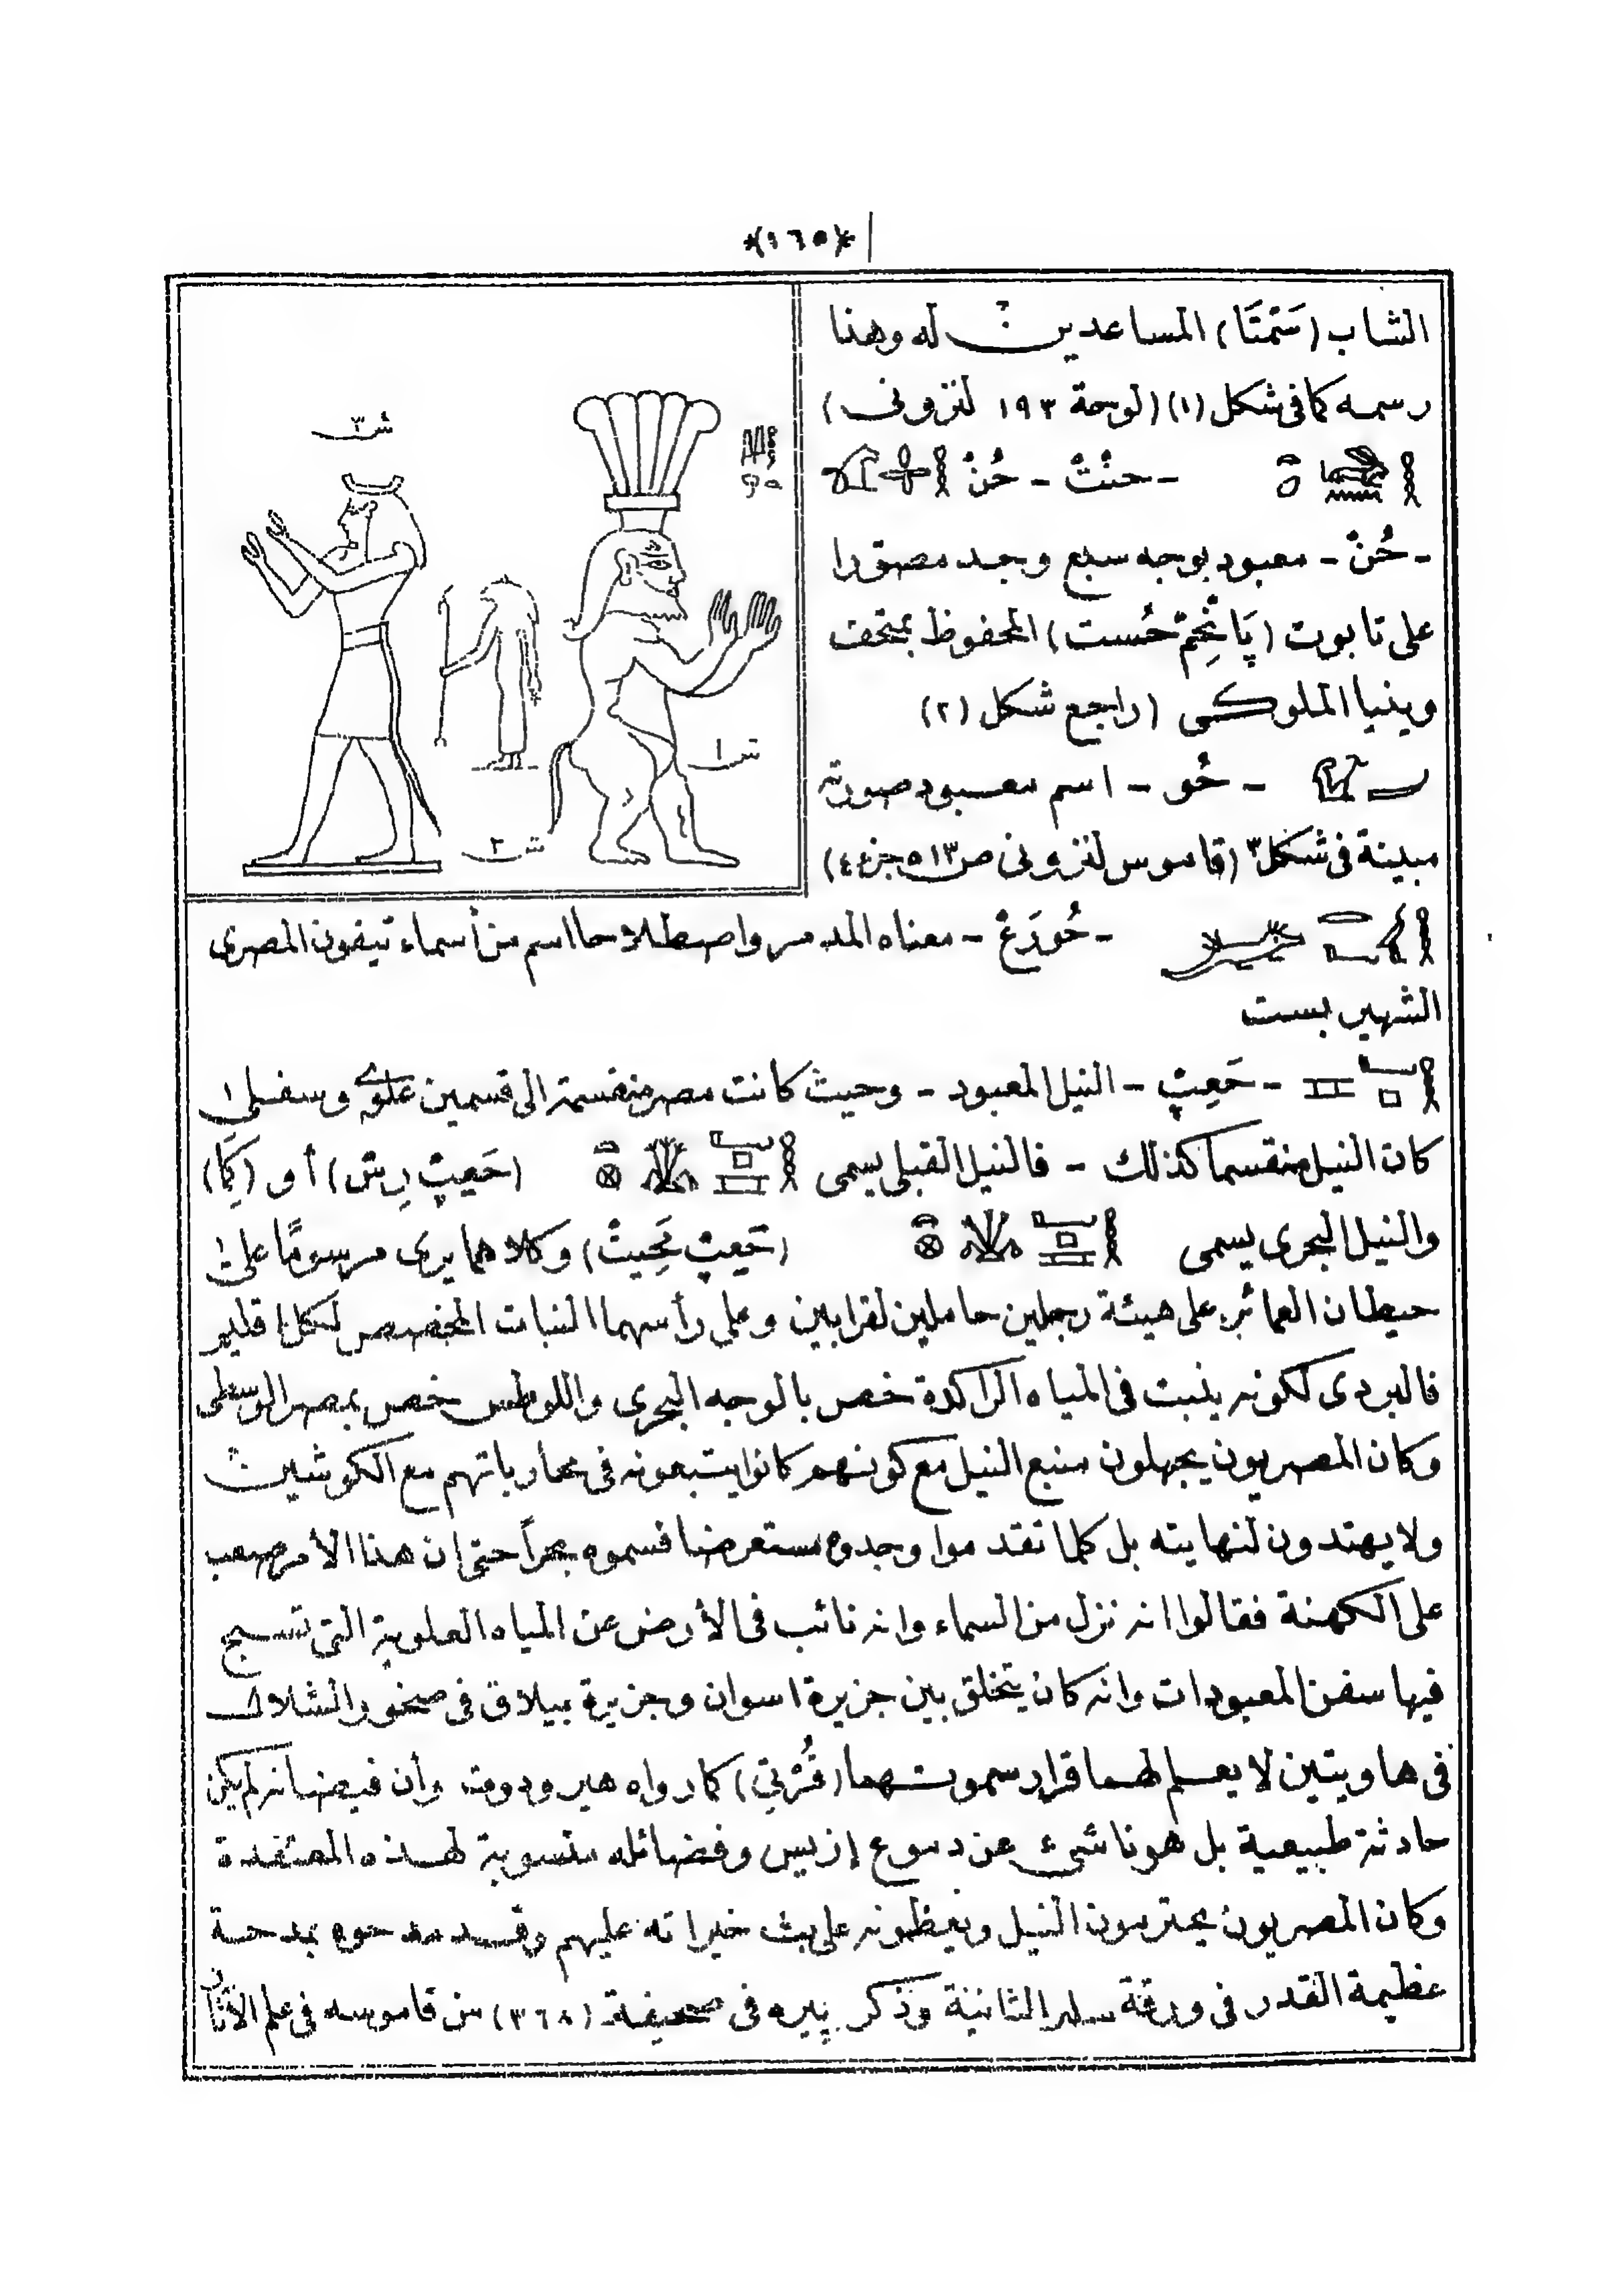 *(١٦٥)*
الشاب (سَمْتَا) المساعدين له وهذا
رسمه كما فى شكل (١) (لوحة ١٩٣ لنزونى)
- حنْتْ - حُنْ
- حُنْ - معبود بوجه سبع وجد مصوّرا
على تابوت (پَانِجِمْ حُست) المحفوظ بمتحف
وينيا الملوكى (راجع شكل (٢)
- حُو - اسم معبود صورته
مبينة فى شكل ٣ (قاموس لنزونى ص ٥١٣ جزء ٤)
ش ٣
ش ١
ش ٢
- حُورَعْ - معناه المدمر واصطلاحا اسم من أسماء تيفون المصرى
الشهير بست
- حَعِپْ - النيل المعبود - وحيث كانت مصر منقسمة الى قسمين علوى وسفلى
كان النيل منقسما كذلك - فالنيل القبلى يسمى (حَعِپْ رِسْ) أو (كَا)
والنيل البحرى يسمى (حَعِپْ مَحِيتْ) وكلاهما يرى مرسومًا على
حيطان العمائر على هيئة رجلين حاملين لقرابين وعلى رأسهما النبات المخصص لكل اقليم
فالبردى لكونه ينبت فى المياه الراكدة خص بالوجه البحرى واللوطس خص بمصر الوسطى
وكان المصريون يجهلون منبع النيل مع كونهم كانوا يتبعونه فى محارباتهم مع الكوشيين
ولا يهتدون لنهايته بل كلما تقدموا وجدوه مستعرضا فسموه بحراً حتى إن هذا الأمر صعب
على الكهنة فقالوا انه نزل من السماء وانه نائب فى الأرض عن المياه العلوية التى تسبح
فيها سفن المعبودات وانه كان يتخلق بين جزيرة اسوان وجزيرة بيلاق فى صخور الشلال
فى هاويتين لا يعلم لهما قرار سموتهما (قُرْتِى) كما رواه هيرودوت وأن فيضانه لم يكن
حادثة طبيعية بل هو ناشىء عن دموع إزيس وفضائله منسوبة لهذه المعتقدة
وكان المصريون يحترمون النيل ويعظمونه على بث خيراته عليهم وقد مدحوه بمدحة
عظيمة القدر فى ورقة سلير الثانية وذكر پيره فى صحيفة (٣٦٨) من قاموسه فى علم الآثار